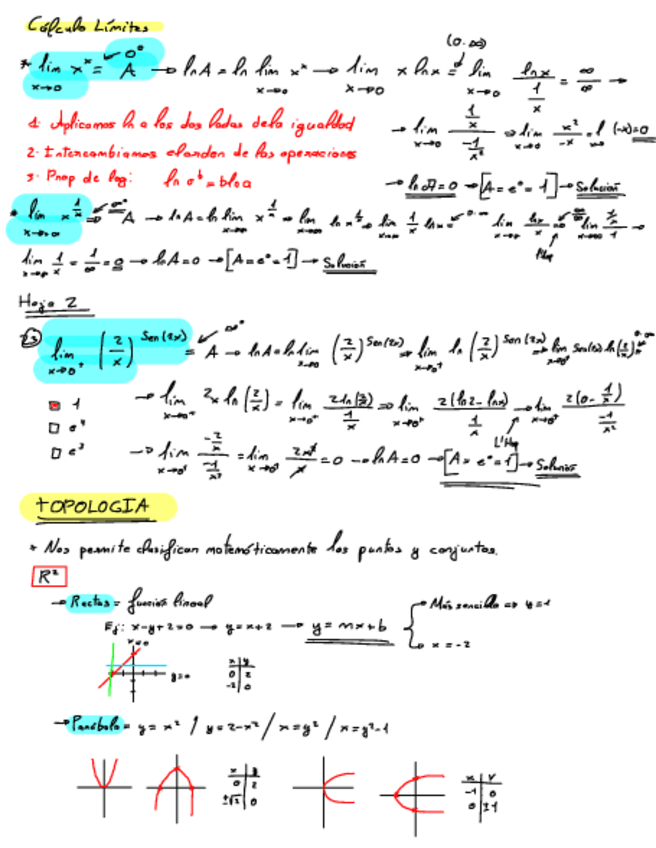 Cálculo Límites
(0·∞)
* lim x→0 x^x = 0^0 A → ln A = ln lim x→0 x^x → lim x→0 x ln x = lim x→0 ln x / (1/x) = ∞/∞ →
1. Aplicamos ln a los dos lados de la igualdad
→ lim (1/x) / (-1/x²) ⇒ lim x²/-x = l (-x) = 0
2. Intercambiamos el orden de las operaciones
3. Prop de log: ln a^b = b ln a
→ ln A = 0 → [A = e^0 = 1] → Solución
* lim x→∞ x^(1/x) ⇒ ∞^0 A → ln A = ln lim x^(1/x) → lim ln x^(1/x) → lim 1/x ln x = 0·∞ lim ln x / x = ∞/∞ lim (1/x)/1 →
L'Hop
lim x→∞ 1/x = 1/∞ = 0 → ln A = 0 → [A = e^0 = 1] → Solución
Hoja 2
23 lim x→0⁺ (2/x)^Sen(2x) = ∞^0 A → ln A = ln lim x→0 (2/x)^Sen(2x) → lim x→0⁺ ln (2/x)^Sen(2x) → lim x→0⁺ Sen(2x) ln(2/x) 0·∞
1 → lim x→0⁺ 2x ln(2/x) = lim x→0⁺ 2 ln(2/x) / (1/x) ⇒ lim x→0⁺ 2(ln2 - lnx) / (1/x) → lim x→0⁺ 2(0 - 1/x) / (-1/x²)
L'Hop
→ lim x→0⁺ (-2/x) / (-1/x²) = lim x→0⁺ 2x²/x = 0 → ln A = 0 → [A = e^0 = 1] → Solución
TOPOLOGIA
* Nos permite clasificar matemáticamente los puntos y conjuntos.
R²
→ Rectas = función lineal
Más sencilla ⇒ y = 1
Ej: x-y+2=0 → y=x+2 → y=mx+b
x = -2
x=0
y=0
x y
0 2
-2 0
→ Parábola = y = x² / y = 2-x² / x = y² / x = y²-1
x y
0 2
±√2 0
x y
-1 0
0 ±1